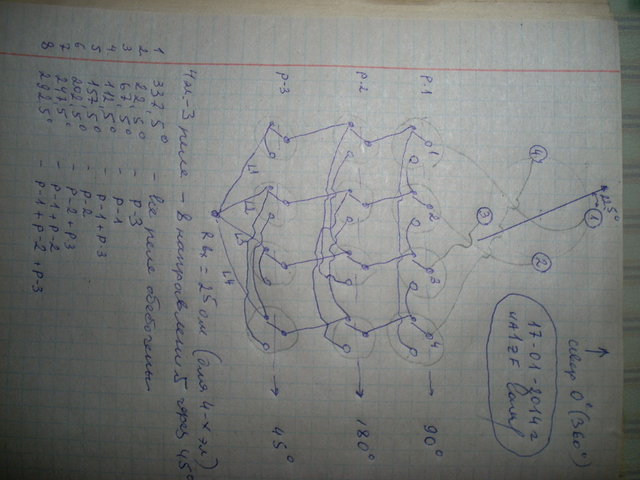 север 0° (360°)
17-01-2014г
UA1ZF
22.5°
1
4
2
3
P-1 1 2 3 4 → 90°
P-2 → 180°
P-3 → 45°
L1 L2 L3 L4
Rвх = 25 ом (для 4-х эл)
4эл - 3 реле → 8 направлений через 45°
1 337,5° - все реле обесточены
2 22,5° - p-3
3 67,5° - p-1
4 112,5° - p-1 + p-3
5 157,5° - p-2
6 202,5° - p-2 + p3
7 247,5° - p-1 + p-2
8 292,5° - p-1 + p-2 + p-3